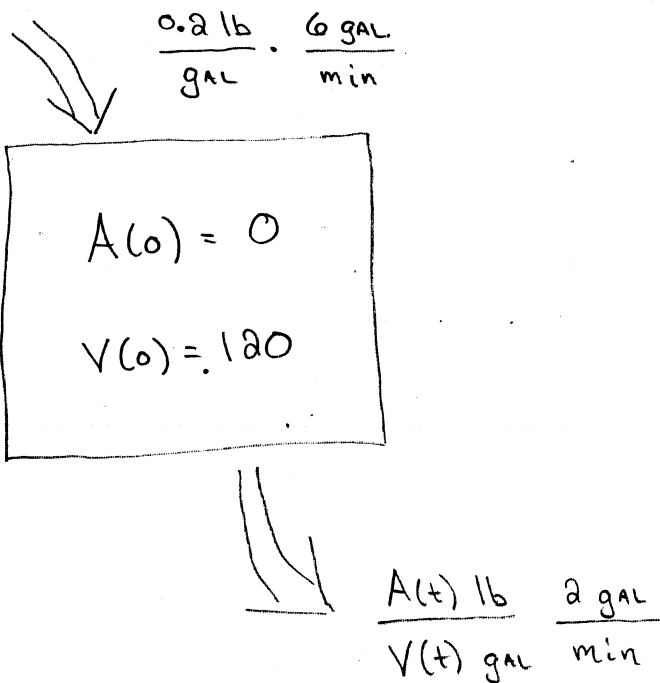 0.2 lb . 6 gAL.
gAL min
A(0) = 0
V(0) = 120
A(t) lb 2 gAL
V(t) gAL min